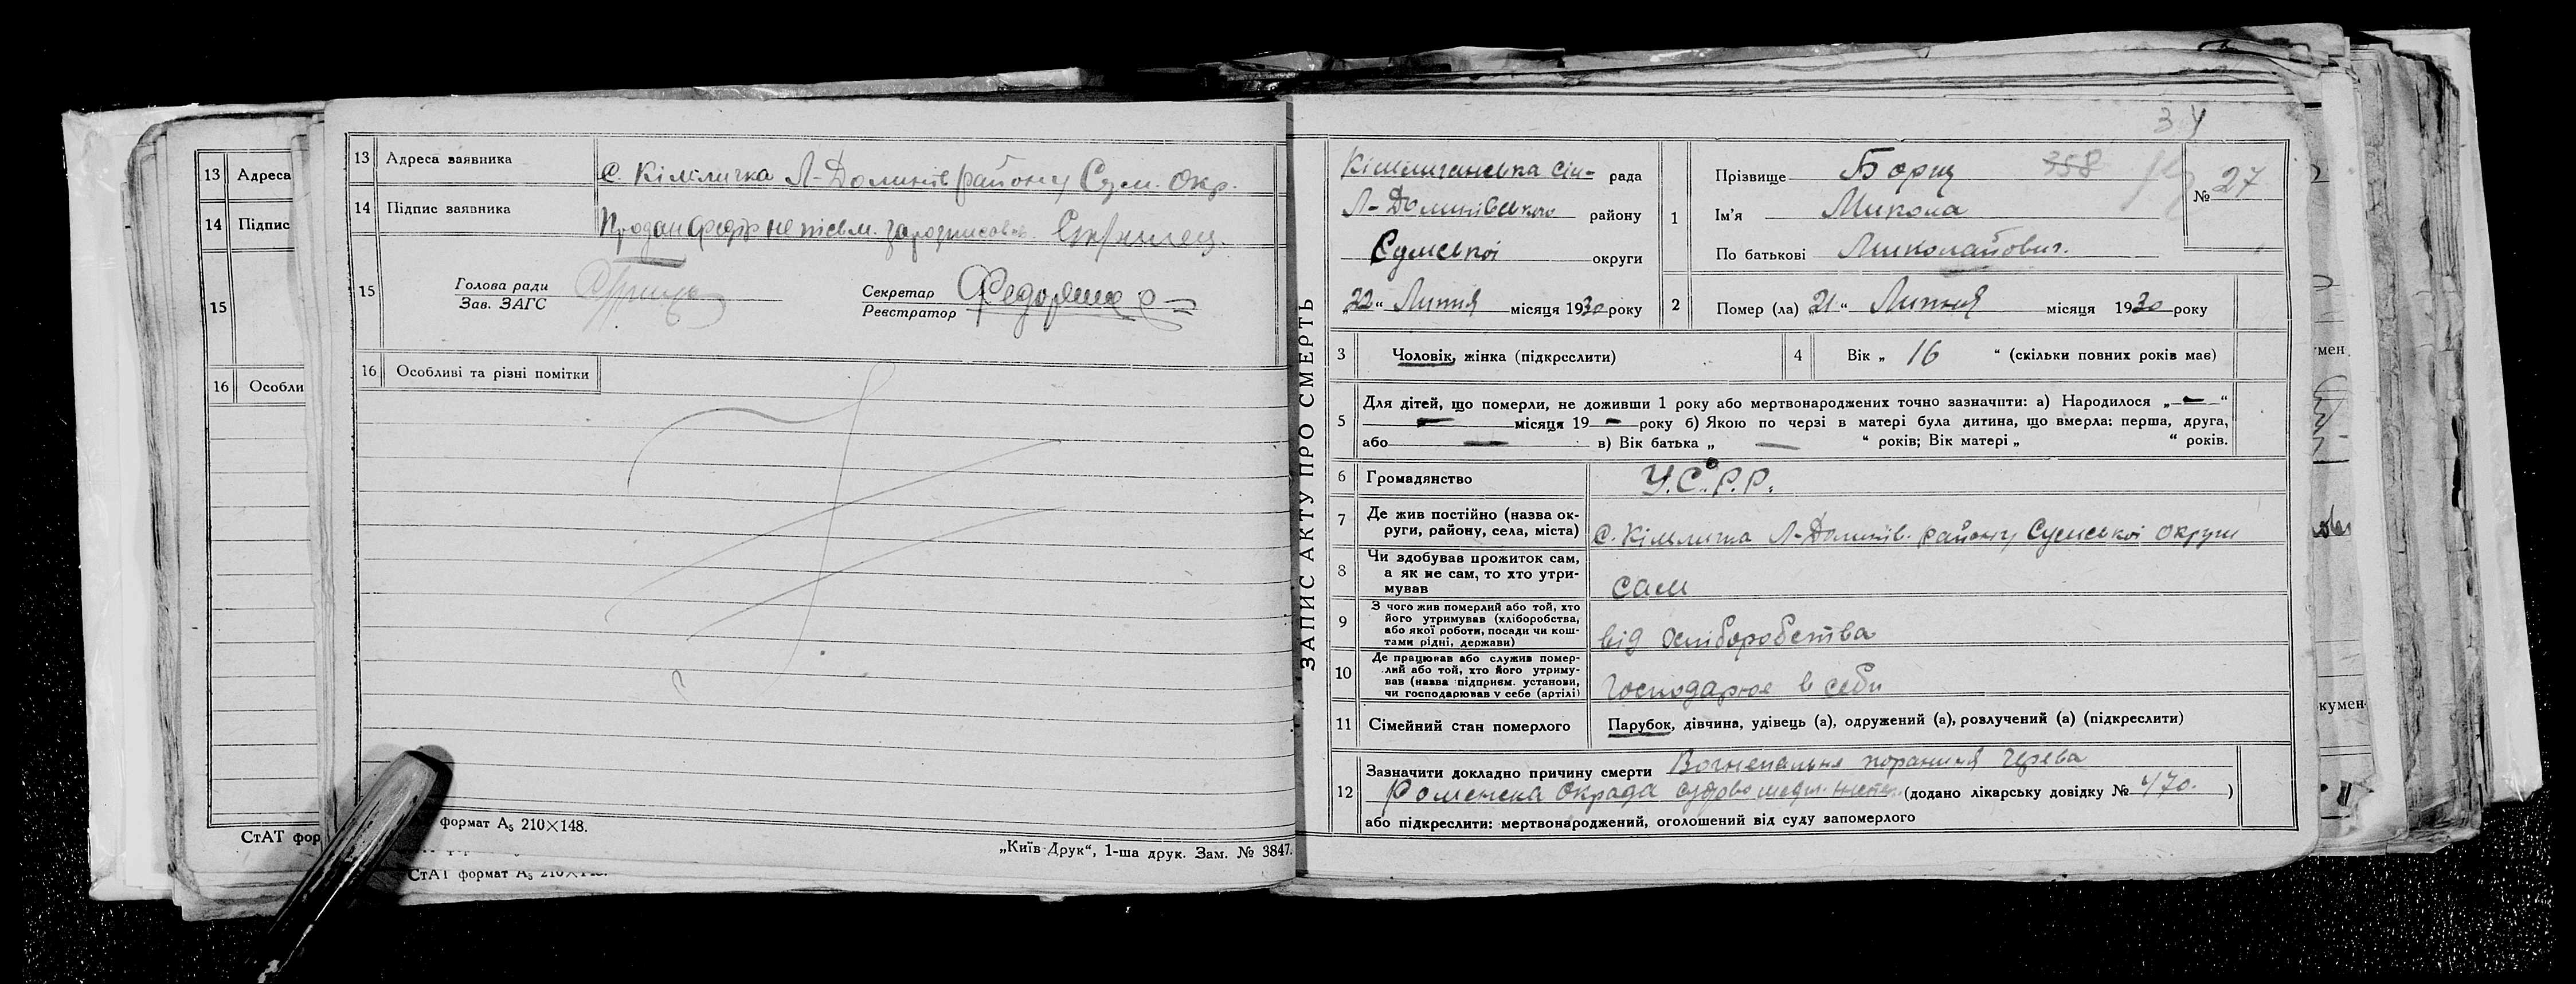 13 Адреса
14 Підпис
15
16 Особли
СтАТ фор
13 Адреса заявника с. Кімличка Л-Долинів району Сум. Окр.
14 Підпис заявника Продан Федір не письм. за розписавсь
15 Голова ради
Зав. ЗАГС
Секретар
Реєстратор
16 Особливі та різні помітки
формат А5 210×148.
„Київ-Друк“, 1-ша друк. Зам. № 3847.
СтАТ формат А5
ЗАПИС АКТУ ПРО СМЕРТЬ
34
Кімличанська сіль- рада
Л-Долинівського району
Сумської округи
„22“ Липня місяця 1930 року
1 Прізвище Борщ 358
Ім'я Микола
По батькові Миколайович.
№ 27
2 Помер (ла) „21“ Липня місяця 1930 року
3 Чоловік, жінка (підкреслити)
4 Вік „ 16 “ (скільки повних років має)
5 Для дітей, що померли, не доживши 1 року або мертвонароджених точно зазначити: а) Народилося „ — “
— місяця 19 — року б) Якою по черзі в матері була дитина, що вмерла: перша, друга,
або — в) Вік батька „ — “ років; Вік матері „ “ років.
6 Громадянство У.С.Р.Р.
7 Де жив постійно (назва ок-
руги, району, села, міста) с. Кімличка Л-Долинів. району Сумської округи
8 Чи здобував прожиток сам,
а як не сам, то хто утри-
мував сам
9 З чого жив померлий або той, хто
його утримував (хліборобства,
або якої роботи, посади чи кош-
тами рідні, держави) від хліборобства
10 Де працював або служив помер-
лий або той, хто його утриму-
вав (назва підприєм. установи,
чи господарював у себе (артілі) господарює в себи
11 Сімейний стан померлого Парубок, дівчина, удівець (а), одружений (а), розлучений (а) (підкреслити)
12 Зазначити докладно причину смерти Вогнепальне поранення черева
Роменська Окрада судово медич. (додано лікарську довідку № 470. )
або підкреслити: мертвонароджений, оголошений від суду запомерлого
мен
кумен-